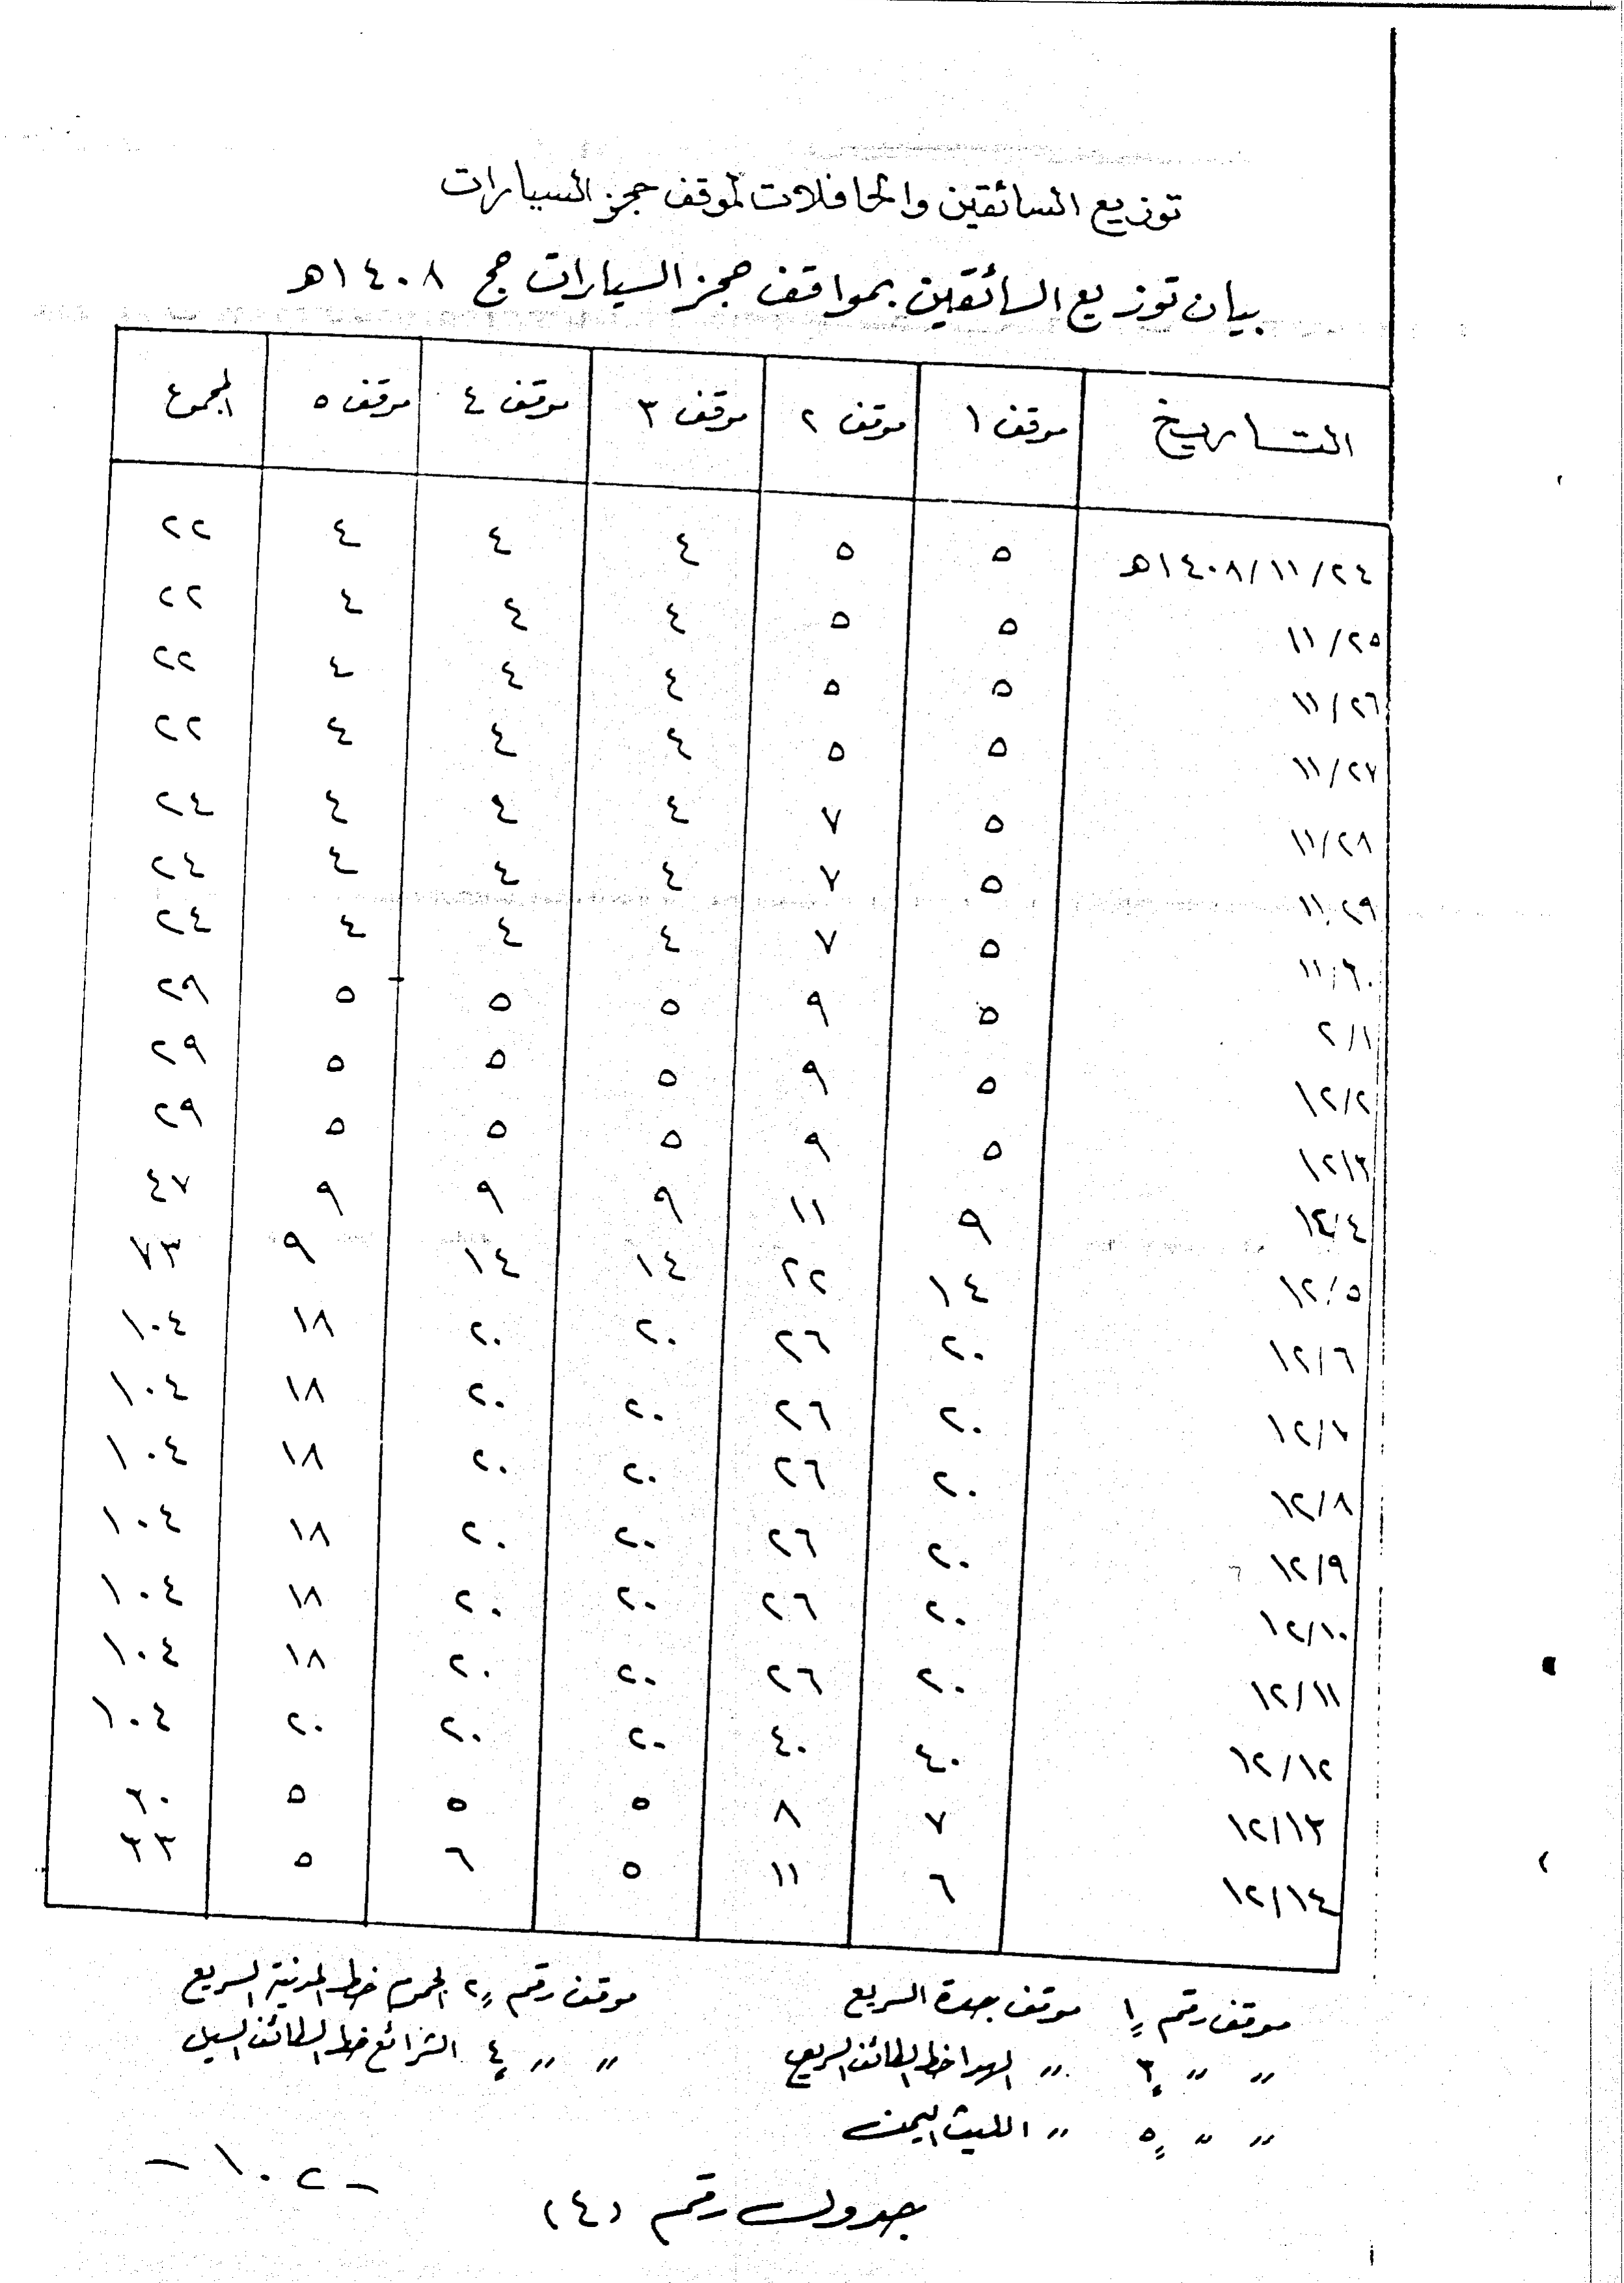 توزيع السائقين والحافلات لموقف حجز السيارات
بيان توزيع السائقين بمواقف حجز السيارات حج ١٤٠٨هـ
التاريخ موقف ١ موقف ٢ موقف ٣ موقف ٤ موقف ٥ المجموع
٢٤/١١/١٤٠٨هـ ٥ ٥ ٤ ٤ ٤ ٢٢
٢٥/١١ ٥ ٥ ٤ ٤ ٤ ٢٢
٢٦/١١ ٥ ٥ ٤ ٤ ٤ ٢٢
٢٧/١١ ٥ ٥ ٤ ٤ ٤ ٢٢
٢٨/١١ ٥ ٧ ٤ ٤ ٤ ٢٤
٢٩/١١ ٥ ٧ ٤ ٤ ٤ ٢٤
٣٠/١١ ٥ ٧ ٤ ٤ ٤ ٢٤
١/٢ ٥ ٩ ٥ ٥ ٥ ٢٩
٢/١٢ ٥ ٩ ٥ ٥ ٥ ٢٩
٣/١٢ ٥ ٩ ٥ ٥ ٥ ٢٩
٤/١٢ ٩ ١١ ٩ ٩ ٩ ٤٧
٥/١٢ ١٤ ٢٢ ١٤ ١٤ ٩ ٧٣
٦/١٢ ٢٠ ٢٦ ٢٠ ٢٠ ١٨ ١٠٤
٧/١٢ ٢٠ ٢٦ ٢٠ ٢٠ ١٨ ١٠٤
٨/١٢ ٢٠ ٢٦ ٢٠ ٢٠ ١٨ ١٠٤
٩/١٢ ٢٠ ٢٦ ٢٠ ٢٠ ١٨ ١٠٤
١٠/١٢ ٢٠ ٢٦ ٢٠ ٢٠ ١٨ ١٠٤
١١/١٢ ٢٠ ٢٦ ٢٠ ٢٠ ١٨ ١٠٤
١٢/١٢ ٤٠ ٤٠ ٢٠ ٢٠ ٢٠ ١٠٤
١٣/١٢ ٧ ٨ ٥ ٥ ٥ ٣٠
١٤/١٢ ٦ ١١ ٥ ٦ ٥ ٣٣
موقف رقم ١ موقف جدة السريع موقف رقم ٢ الجموم خط المدينة السريع
〃 〃 ٣ 〃 الهدا خط الطائف السريع 〃 〃 ٤ الشرائع خط الطائف السيل
〃 〃 ٥ 〃 الليث اليمن
- ١٠٢ -
جدول رقم (٤)